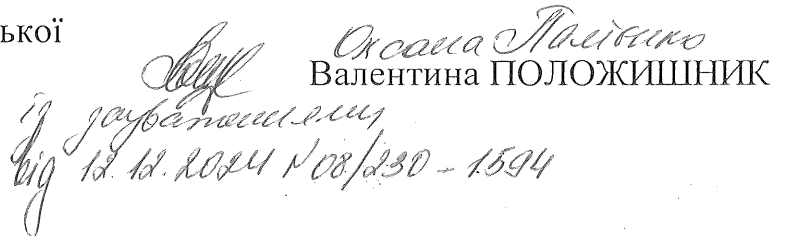 ької
Оксана
Валентина ПОЛОЖИШНИК
із зауваженнями
від 12.12.2024 N 08/230-1594